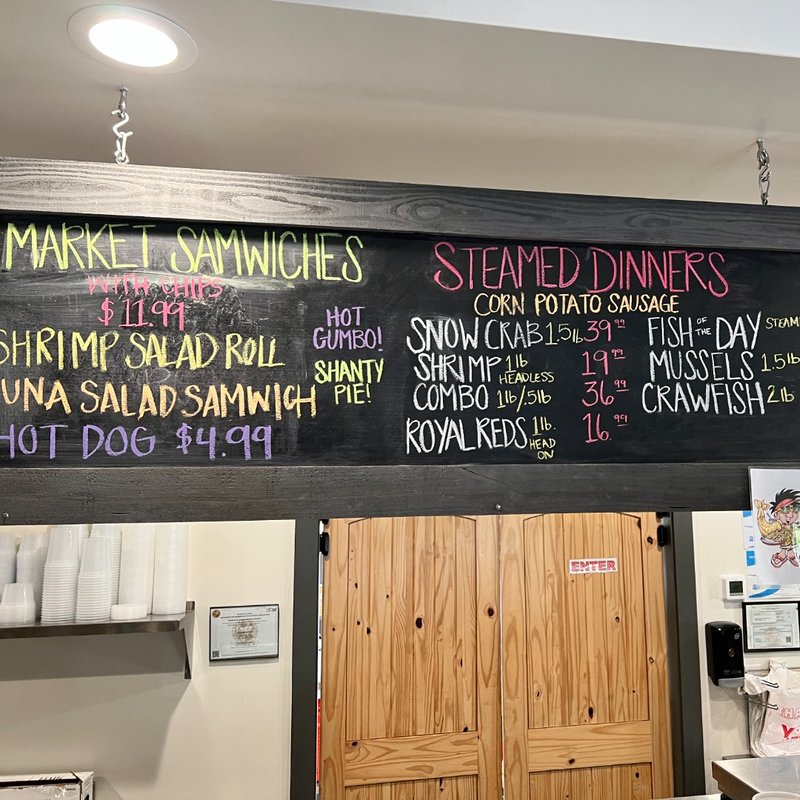 MARKET SAMWICHES
WITH CHIPS
$11.99
SHRIMP SALAD ROLL
UNA SALAD SAMWICH
HOT DOG $4.99
HOT
GUMBO!
SHANTY
PIE!
STEAMED DINNERS
CORN POTATO SAUSAGE
SNOW CRAB 1.5lb 39.99
SHRIMP 1lb HEADLESS 19.99
COMBO 1lb/.5lb 36.99
ROYAL REDS 1lb. HEAD ON 16.99
FISH OF THE DAY STEAM
MUSSELS 1.5lb
CRAWFISH 2lb
ENTER